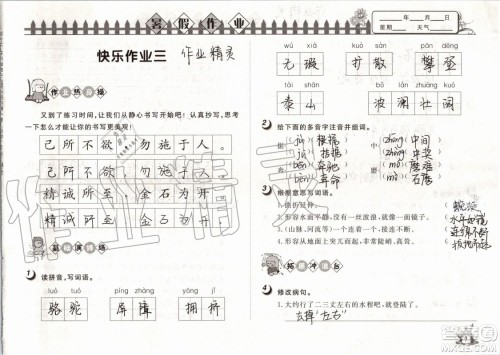 暑假作业
____年__月__日
星期____ 天气____
快乐作业三 作业精灵
作业热身操
又到了练习时间,让我们从静心书写开始吧!认真抄写,思考
一下怎么才能让你的书写更美观!
己所不欲,勿施于人。
己所不欲,勿施于人。
精诚所至,金石为开
精诚所至,金石为开
基础演练场
1 读拼音,写词语。
luò tuo píng zhàng yōng jǐ
骆驼 屏障 拥挤
wú xiá kuò sàn pān dēng
无瑕 扩散 攀登
tài shān bō lán zhuàng kuò
泰山 波澜 壮阔
2 给下面的多音字注音并组词。
中 (zhōng) 中间
(zhòng) 中奖
3 根据意思写词语。
1. 形容仪器
2. 形容水面平静,没有一丝波浪,就像一面镜子。
3. (山脉、河流等)一个连着一个,没有间断。
4. 形容山从地面上突兀而起,非常陡峭、高峻。
水平如镜
连绵不断
拔地而起
拓展冲浪台
4 修改病句。
1. 大约行了二三丈左右的水程吧,就登陆了。
去掉“左右”